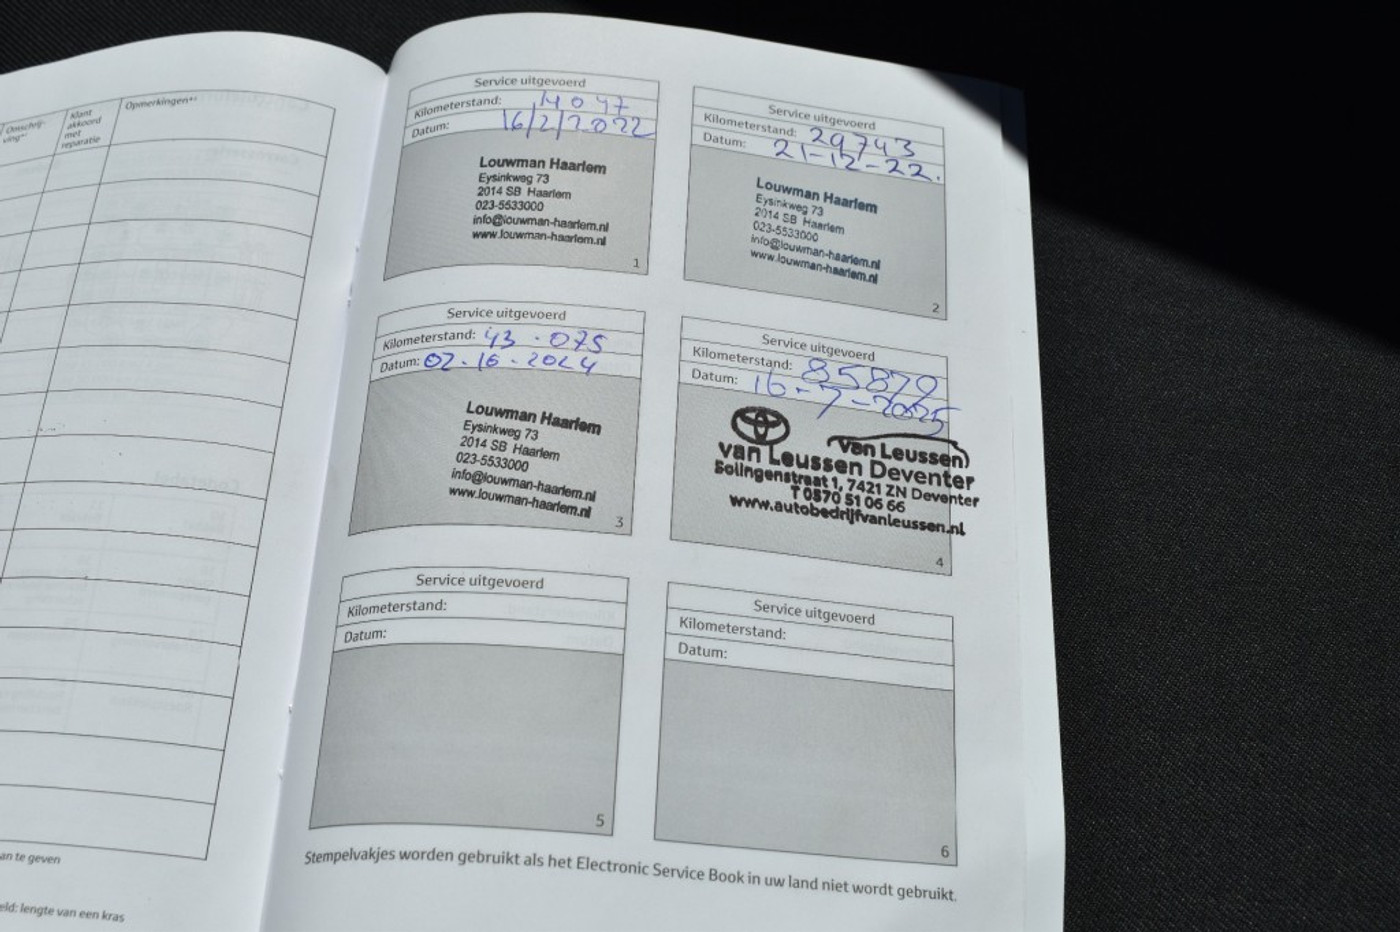 Omschrij-
ving*¹
Klant
akkoord
met
reparatie
Opmerkingen*¹
an te geven
eld: lengte van een kras
Service uitgevoerd
Kilometerstand: 14047
Datum: 16/2/2022
Louwman Haarlem
Eysinkweg 73
2014 SB Haarlem
023-5533000
info@louwman-haarlem.nl
www.louwman-haarlem.nl
1
Service uitgevoerd
Kilometerstand: 29743
Datum: 21-12-22.
Louwman Haarlem
Eysinkweg 73
2014 SB Haarlem
023-5533000
info@louwman-haarlem.nl
www.louwman-haarlem.nl
2
Service uitgevoerd
Kilometerstand: 43.075
Datum: 02.16.2024
Louwman Haarlem
Eysinkweg 73
2014 SB Haarlem
023-5533000
info@louwman-haarlem.nl
www.louwman-haarlem.nl
3
Service uitgevoerd
Kilometerstand: 85870
Datum: 16-7-2025
van Leussen
van Leussen Deventer
Solingenstraat 1, 7421 ZN Deventer
T 0570 51 06 66
www.autobedrijfvanleussen.nl
4
Service uitgevoerd
Kilometerstand:
Datum:
5
Service uitgevoerd
Kilometerstand:
Datum:
6
Stempelvakjes worden gebruikt als het Electronic Service Book in uw land niet wordt gebruikt.